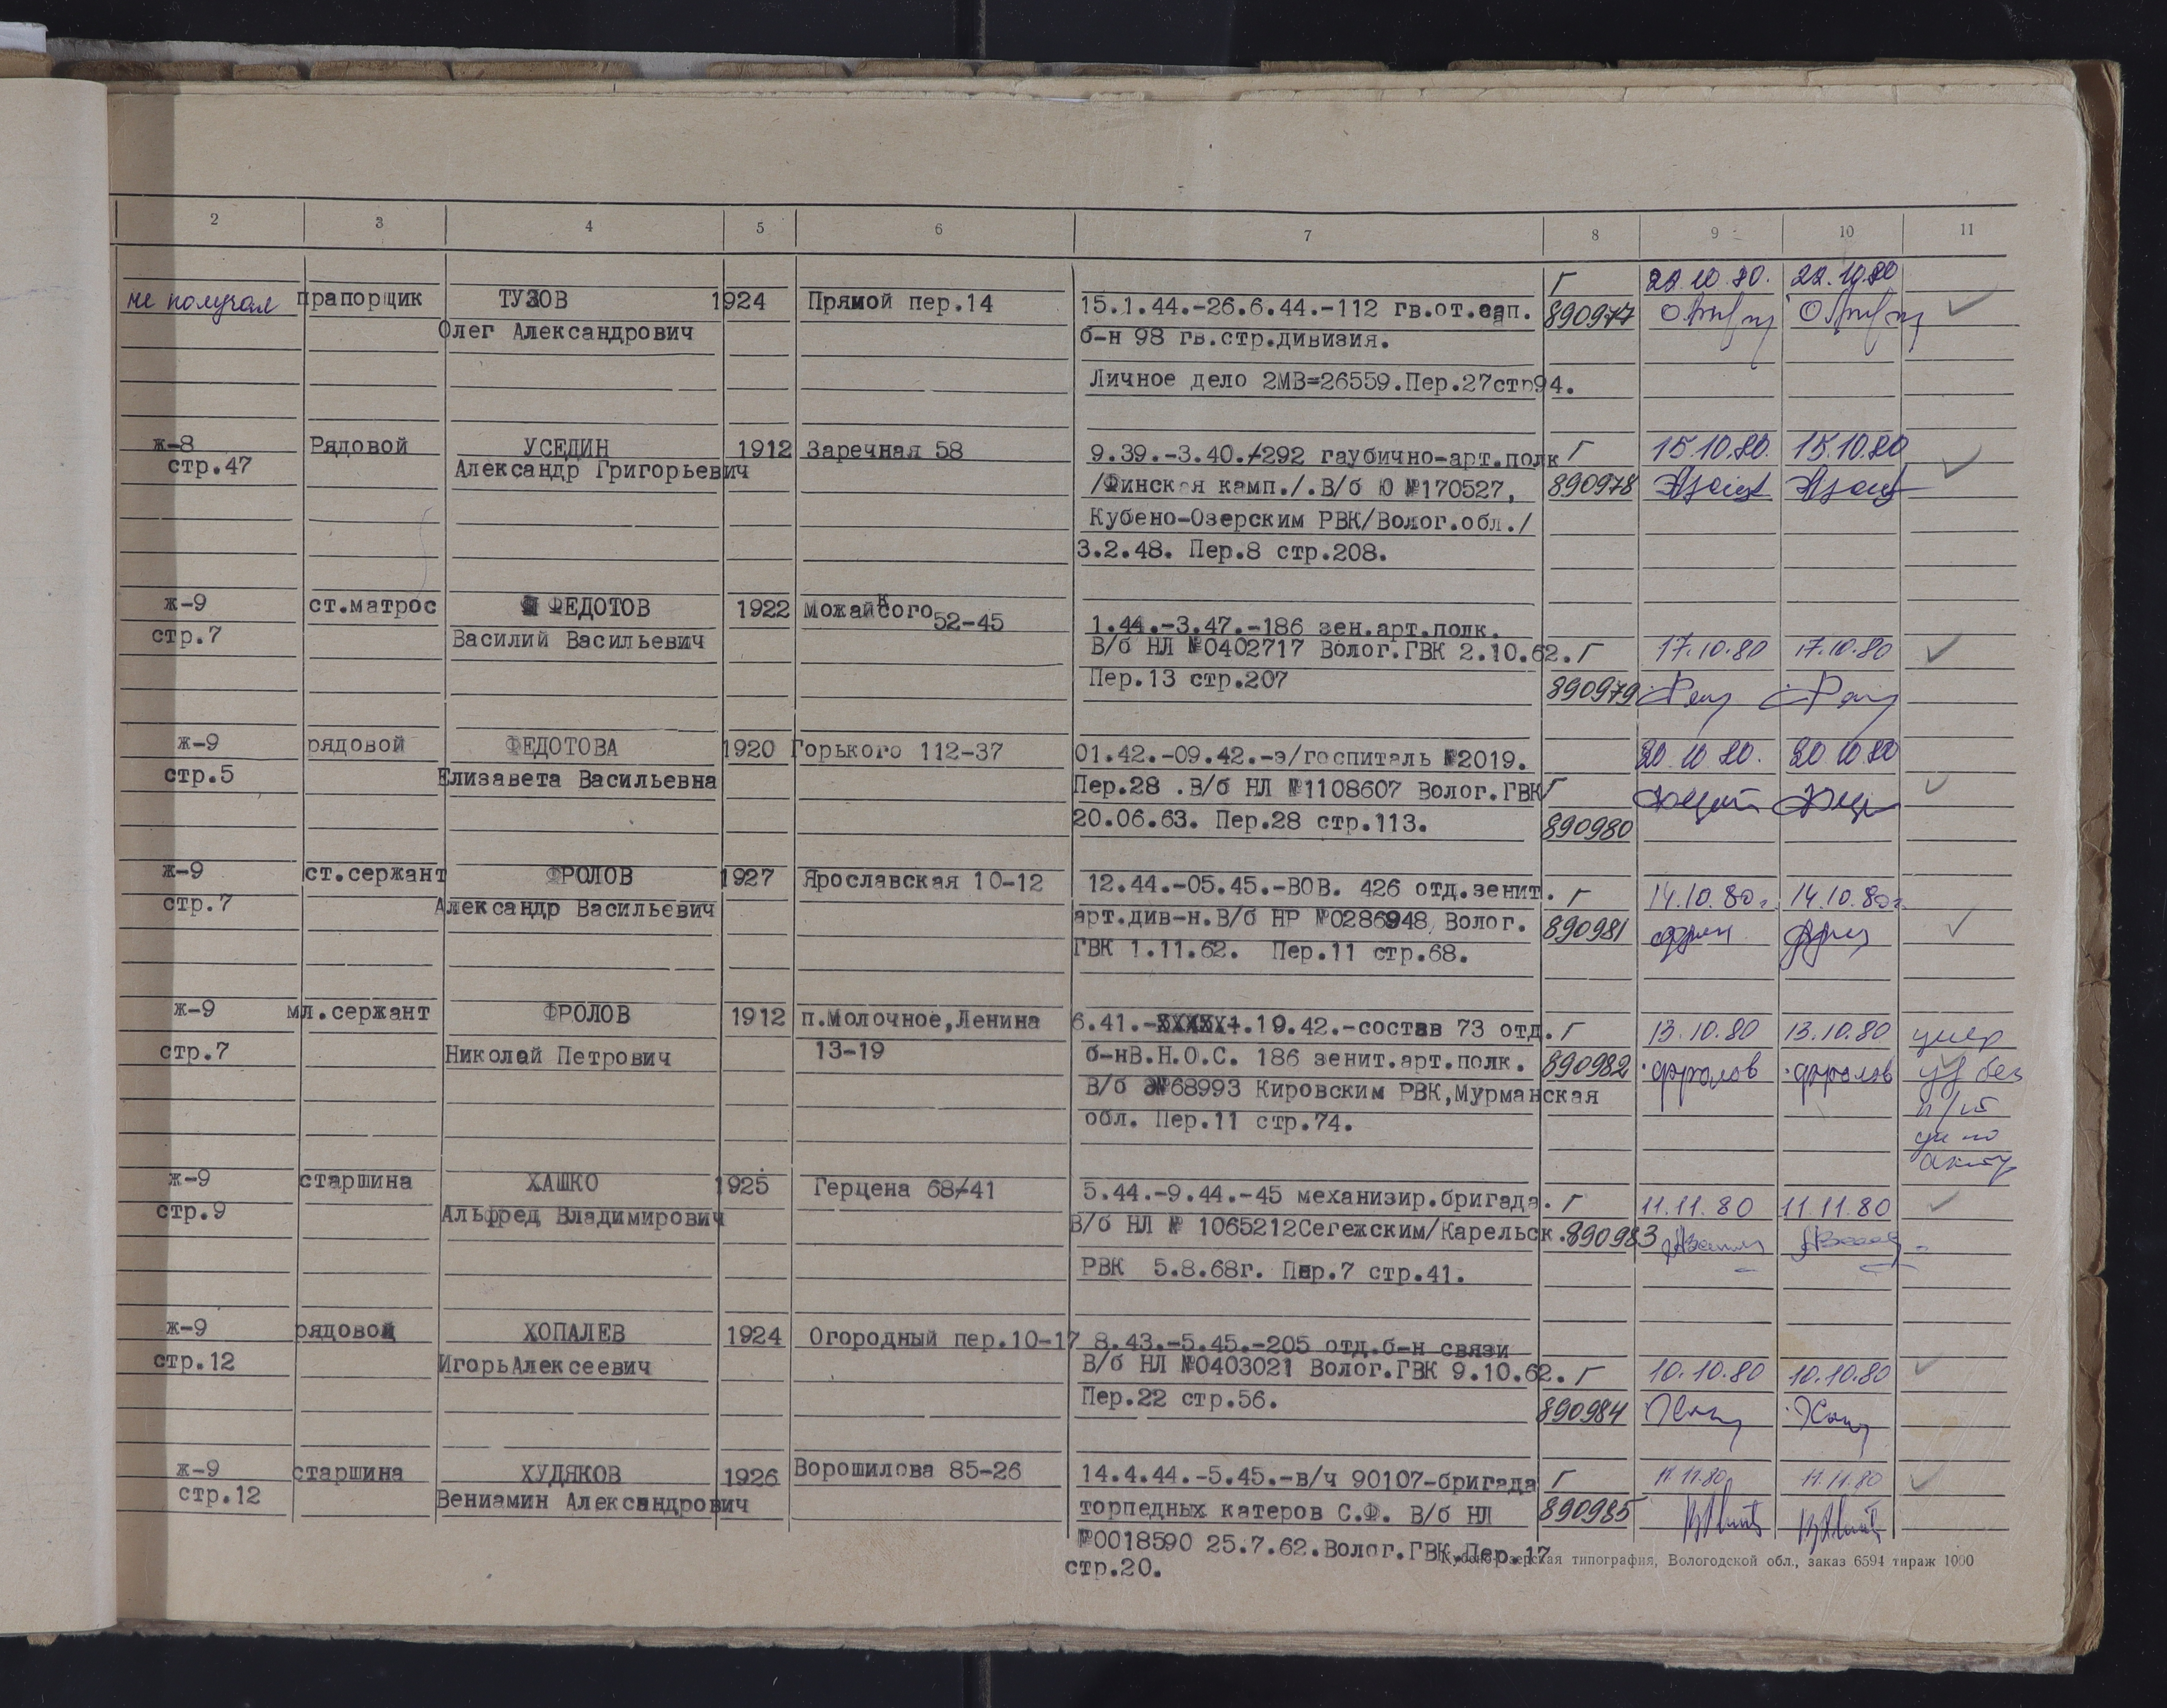 2 3 4 5 6 7 8 9 10 11
не получал прапорщик ТУЗОВ 1924 Прямой пер.14 15.1.44.-26.6.44.-112 гв.от.сап. Г 22.10.80. 22.10.80
Олег Александрович б-н 98 гв.стр.дивизия. 890977
Личное дело 2МВ=26559.Пер.27стр94.
ж-8 Рядовой УСЕДИН 1912 Заречная 58 9.39.-3.40.-292 гаубично-арт.полк Г 15.10.80. 15.10.80
стр.47 Александр Григорьевич /Финская камп./.В/б Ю №170527, 890978
Кубено-Озерским РВК/Волог.обл./
3.2.48. Пер.8 стр.208.
ж-9 ст.матрос ФЕДОТОВ 1922 Можайского 52-45 1.44.-3.47.-186 зен.арт.полк.
стр.7 Василий Васильевич В/б НЛ №0402717 Волог.ГВК 2.10.62. Г 17.10.80 17.10.80
Пер.13 стр.207 890979
ж-9 рядовой ФЕДОТОВА 1920 Горького 112-37 01.42.-09.42.-э/госпиталь №2019. 20.10.80. 20.10.80
стр.5 Елизавета Васильевна Пер.28 .В/б НЛ №1108607 Волог.ГВК Г
20.06.63. Пер.28 стр.113. 890980
ж-9 ст.сержант ФРОЛОВ 1927 Ярославская 10-12 12.44.-05.45.-ВОВ. 426 отд.зенит. Г 14.10.80г. 14.10.80г.
стр.7 Александр Васильевич арт.див-н.В/б НР №0286948 Волог. 890981
ГВК 1.11.62. Пер.11 стр.68.
ж-9 мл.сержант ФРОЛОВ 1912 п.Молочное,Ленина 6.41.-1.19.42.-состав 73 отд. Г 13.10.80 13.10.80 умер
стр.7 Николай Петрович 13-19 б-нВ.Н.О.С. 186 зенит.арт.полк. 890982 Фролов Фролов уд без
В/б №68993 Кировским РВК,Мурманская
обл. Пер.11 стр.74.
акту
ж-9 старшина ХАШКО 1925 Герцена 68-41 5.44.-9.44.-45 механизир.бригада. Г 11.11.80 11.11.80
стр.9 Альфред Владимирович В/б НЛ № 1065212Сегежским/Карельск. 890983
РВК 5.8.68г. Пер.7 стр.41.
ж-9 рядовой ХОПАЛЕВ 1924 Огородный пер.10-17 8.43.-5.45.-205 отд.б-н связи
стр.12 ИгорьАлексеевич В/б НЛ №0403021 Волог.ГВК 9.10.62. Г 10.10.80 10.10.80
Пер.22 стр.56. 890984
ж-9 старшина ХУДЯКОВ 1926 Ворошилова 85-26 14.4.44.-5.45.-в/ч 90107-бригада Г 11.11.80 11.11.80
стр.12 Вениамин Александрович торпедных катеров С.Ф. В/б НЛ 890985
№0018590 25.7.62.Волог.ГВК.Пер.17
стр.20.
Кубено-Озерская типография, Вологодской обл., заказ 6594 тираж 1000